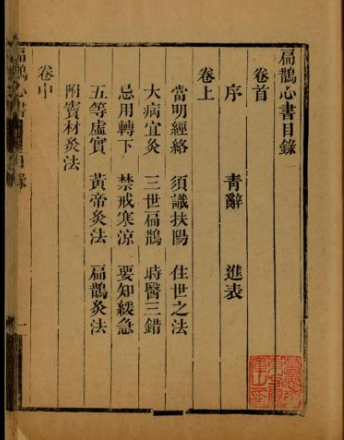 扁鵲心書目錄
卷首
序 青辭 進表
卷上
當明經絡 須識扶陽 住世之法
大病宜灸 三世扁鵲 時醫三錯
忌用轉下 禁戒寒涼 要知緩急
五等虛實 黃帝灸法 扁鵲灸法
附竇材灸法
卷中
扁鵲心書 目錄 一